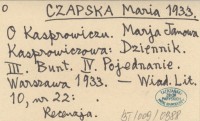 CZAPSKA Maria 1933.
O Kasprowiczu. Marja Janowa
Kasprowiczowa: Dziennik.
III. Bunt. IV. Pojednanie.
Warszawa 1933. — Wiad. Lit.
10, nr 22:
Recenzja.